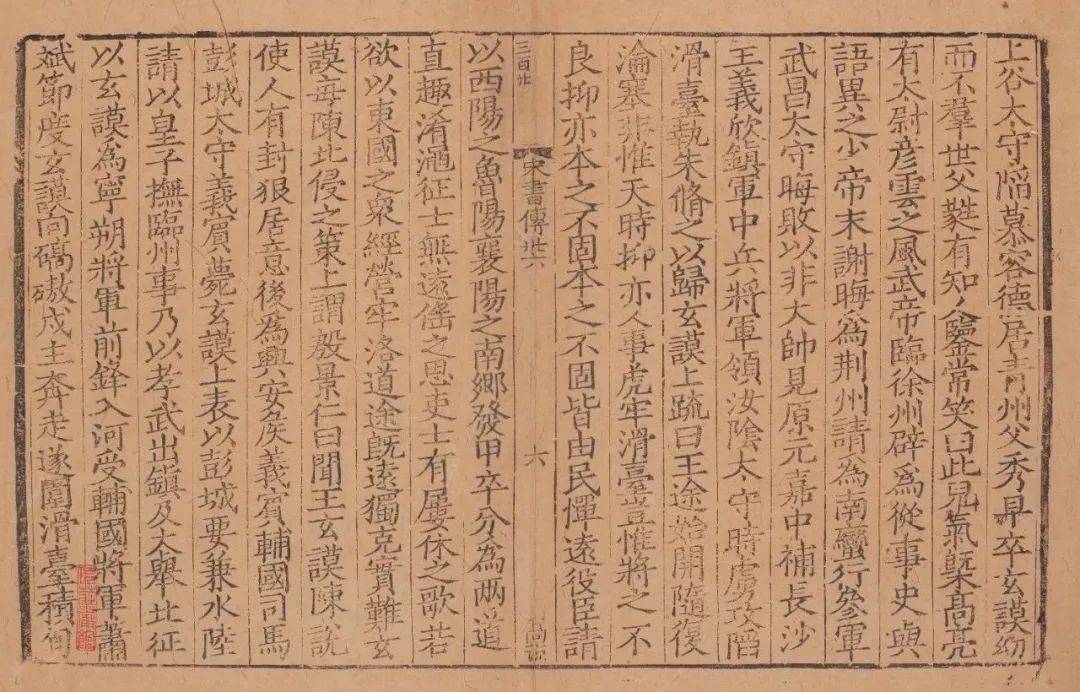 上谷太守隨慕容德居青州父秀早卒玄謨幼
而不羣世父蕤有知人鑒常笑曰此兒氣槩高亮
有太尉彥雲之風武帝臨徐州辟爲從事史與
語異之少帝末謝晦爲荆州請為南蠻行參軍
武昌太守晦敗以非大帥見原元嘉中補長沙
王義欣鎮軍中兵將軍領汝陰太守時虜攻䧟
滑臺執朱脩之以歸玄謨上䟽曰王途始開隨復
淪塞非惟天時抑亦人事虎牢滑臺豈惟將之不
良抑亦本之不固本之不固皆由民憚遠役臣請
三百廿
宋書傳卅六
六
以西陽之魯陽襄陽之南郷發甲卒分為兩道
直趣淆澠征士無遠徭之思吏士有屢休之歌若
欲以東國之衆經營牢洛道途旣遠獨克實難玄
謨每陳北侵之策上謂殷景仁曰聞王玄謨陳說
使人有封狼居意後爲興安矦義賓輔國司馬
彭城太守義賔薨玄謨上表以彭城要兼水陸
請以皇子撫臨州事乃以孝武出鎮及大舉北征
以玄謨為寧朔將軍前鋒入河受輔國將軍蕭
斌節度玄謨向碻磝戍主奔走遂圍滑臺積旬